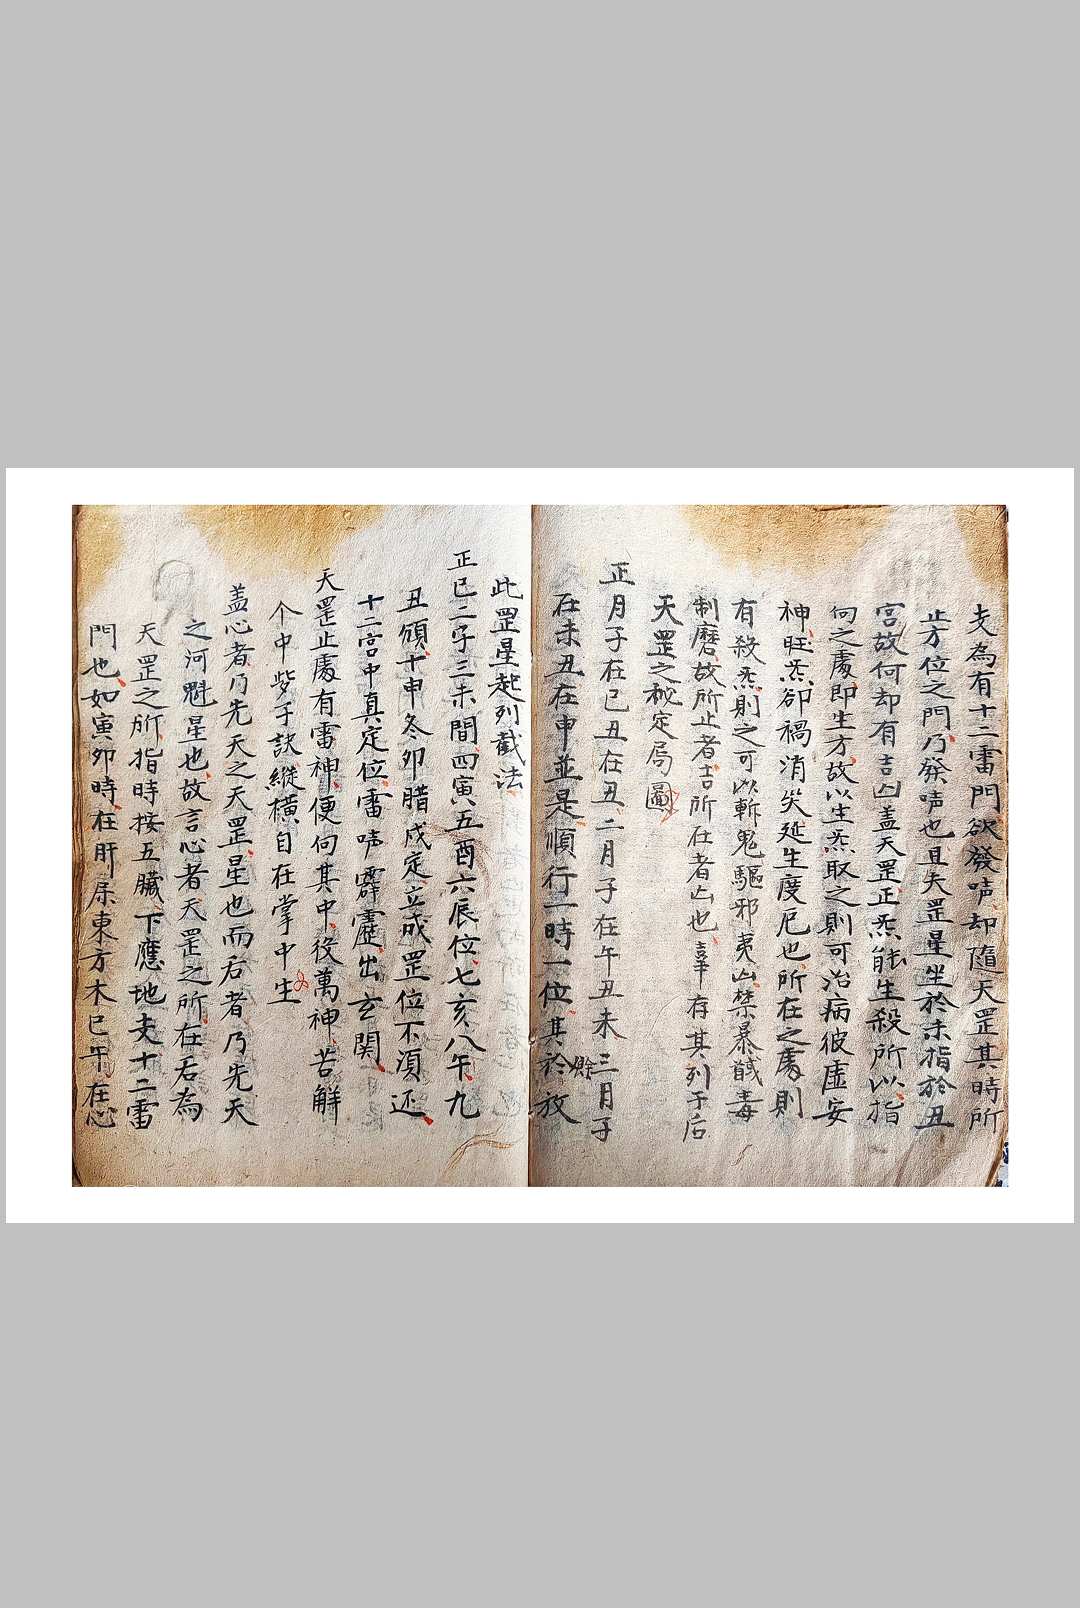 支為有十二雷門欲發声却随天罡其時所
止方位之門乃發声也且夫罡星坐於未指於丑
宮故何却有吉凶盖天罡正炁能生殺所以指
何之處即生方故以生炁取之則可治病彼虛安
神旺炁卻禍消災延生度厄也所在之處則
有殺炁則之可以斬鬼驅邪夷凶禁暴馘毒
制魔故所止者吉所在者凶也幸存其列于后
天罡之秘定局圖
正月子在巳丑在丑二月子在午丑未三月子
在未丑在申並是順行一時一位其餘於放
此罡星起列截法
正巳二子三未間四寅五酉六辰位七亥八午九
丑頒十申冬卯腊成定立成罡位不須还
十二宮中真定位雷声霹靂出玄関
天罡止處有雷神便向其中役萬神若解
个中紫子訣縱橫自在掌中生
盖心者乃先天之天罡星也而后者乃先天
之河魁星也故言心者天罡之所在右為
天罡之所指時按五臟下應地支十二雷
門也如寅卯時在肝屬東方木巳午在心